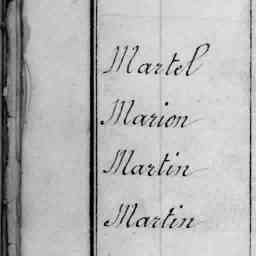 Martel
Marion
Martin
Martin